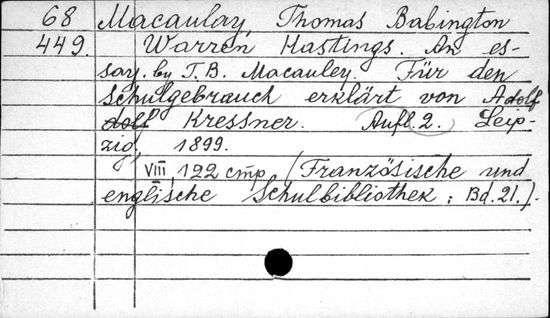 68 Macaulay, Thomas Babington
449. Warren Hastings. An es-
say. by T. B. Macauley. Für den
Schulgebrauch erklärt von Adolf
dolf Kressner. Aufl. 2. Leip-
zig, 1899.
VIII, 122 стр. (Französische und
englische Schulbibliothek; Bd. 21.).